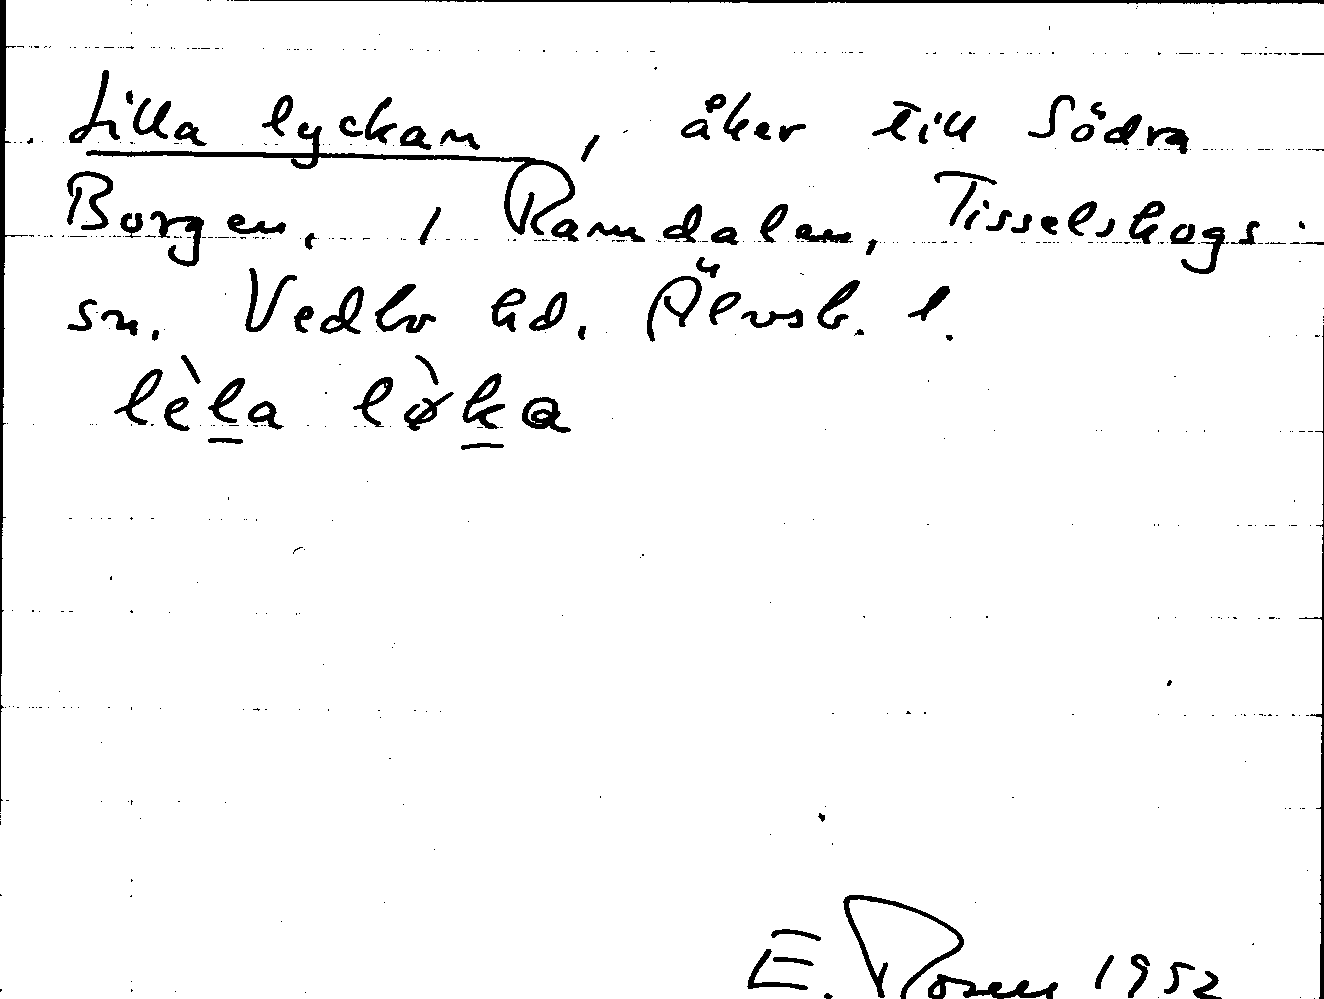 Lilla lyckan, åker till Södra
Borgen, 1 Ramdalen, Tisselskogs
sn. Vedbo hd. Älvsb. l.
lèla lø̀ka
E. Rosen 1952